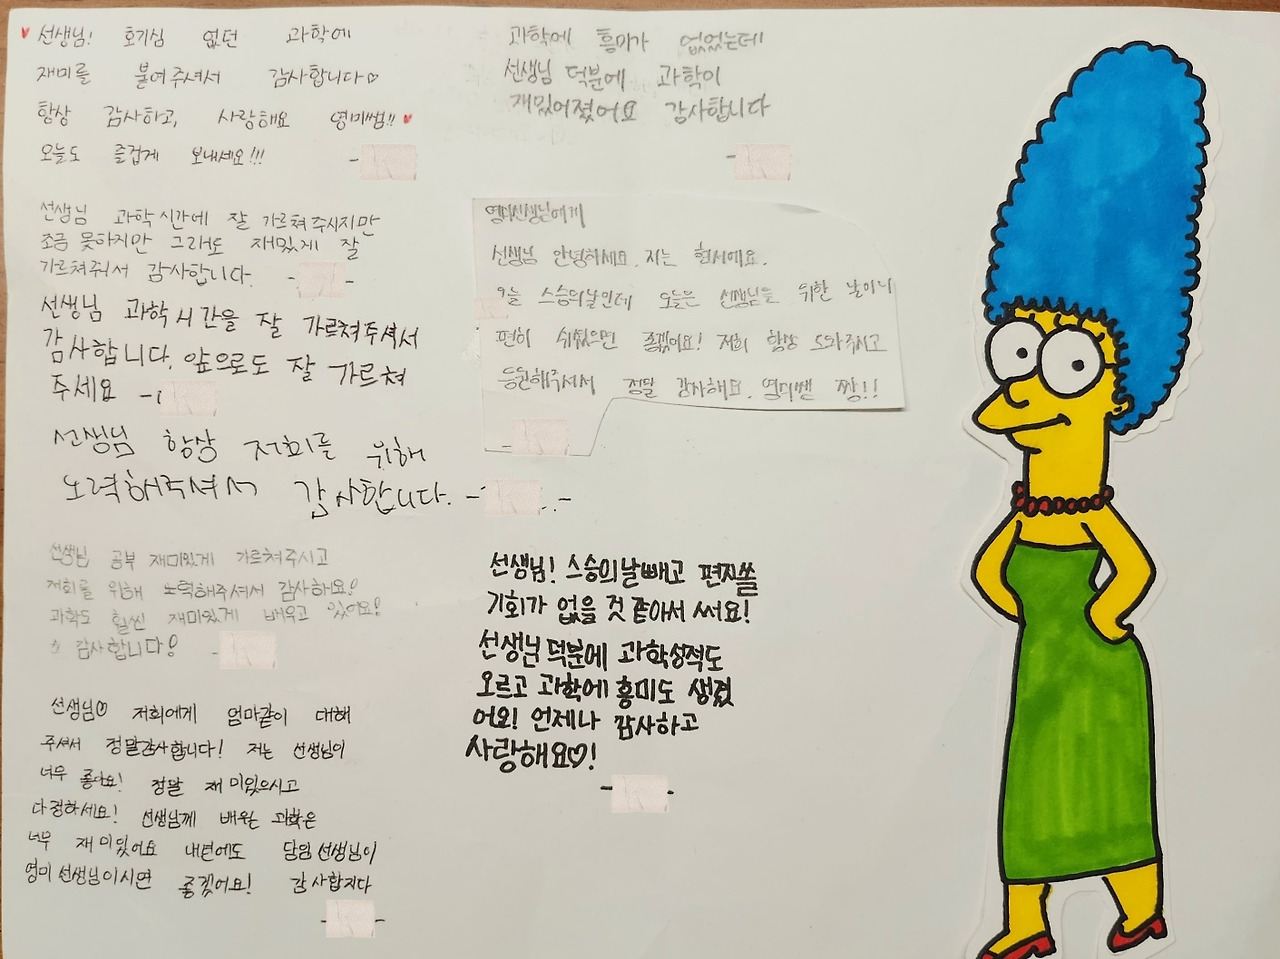 선생님! 호기심 없던 과학에
재미를 붙여주셔서 감사합니다♡
항상 감사하고, 사랑해요 영미쌤!!♥
오늘도 즐겁게 보내세요!!!
선생님 과학시간에 잘 가르쳐주시지만
조금 못하지만 그래도 재밌게 잘
가르쳐줘서 감사합니다.
선생님 과학시간을 잘 가르쳐주셔서
감사합니다. 앞으로도 잘 가르쳐
주세요
선생님 항상 저희를 위해
노력해주셔서 감사합니다.
선생님 공부 재미있게 가르쳐주시고
저희를 위해 노력해주셔서 감사해요!
과학도 훨씬 재미있게 배우고 있어요!
감사합니다!
선생님♡ 저희에게 엄마같이 대해
주셔서 정말감사합니다! 저는 선생님이
너무 좋아요! 정말 재미있으시고
다정하세요! 선생님께 배우는 과학은
너무 재미있어요 내년에도 담임선생님이
영미선생님이시면 좋겠어요! 감사합니다
과학에 흥미가 없었는데
선생님 덕분에 과학이
재밌어졌어요 감사합니다
영미선생님에게
선생님 안녕하세요. 저는 현서에요.
오늘 스승의날인데 오늘은 선생님을 위한 날이니
편히 쉬셨으면 좋겠어요! 저희 항상 도와주시고
응원해주셔서 정말 감사해요. 영미쌤 짱!!
선생님! 스승의날빼고 편지쓸
기회가 없을 것 같아서 써요!
선생님 덕분에 과학성적도
오르고 과학에 흥미도 생겼
어요! 언제나 감사하고
사랑해요♡!